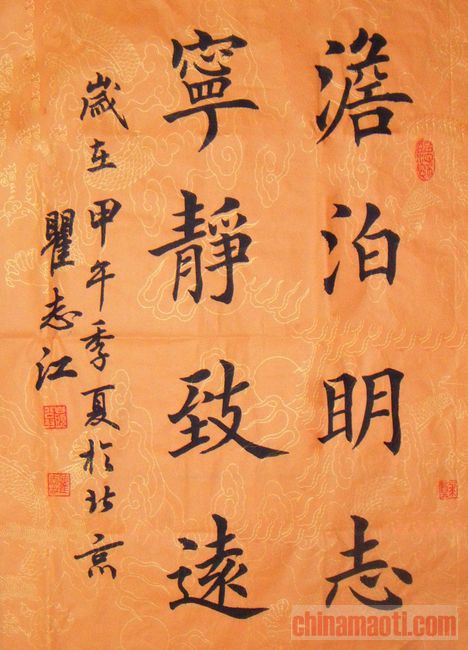 澹泊明志
寧靜致遠
歲在甲午季夏於北京
瞿志江
chinamaoti.com